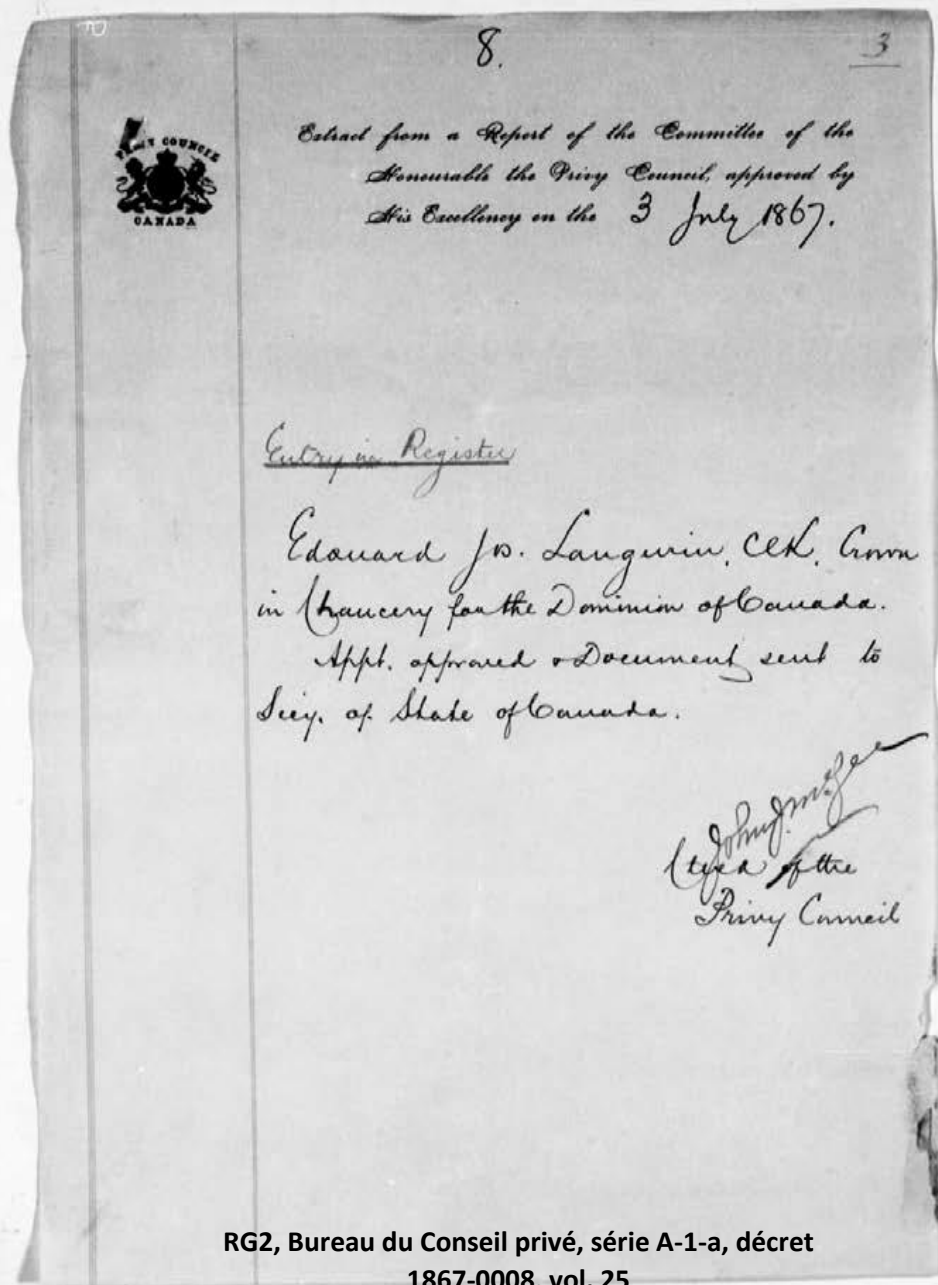 8.
3
PRIVY COUNCIL
CANADA
Extract from a Report of the Committee of the
Honourable the Privy Council, approved by
His Excellency on the 3 July 1867.
Entry in Register
Edouard Jos. Langevin, Clk, Crown
in Chancery for the Dominion of Canada.
Appt. approved & Document sent to
Secy. of State of Canada.
John J. McGee
Clerk of the
Privy Council
RG2, Bureau du Conseil privé, série A-1-a, décret
1867-0008, vol. 25